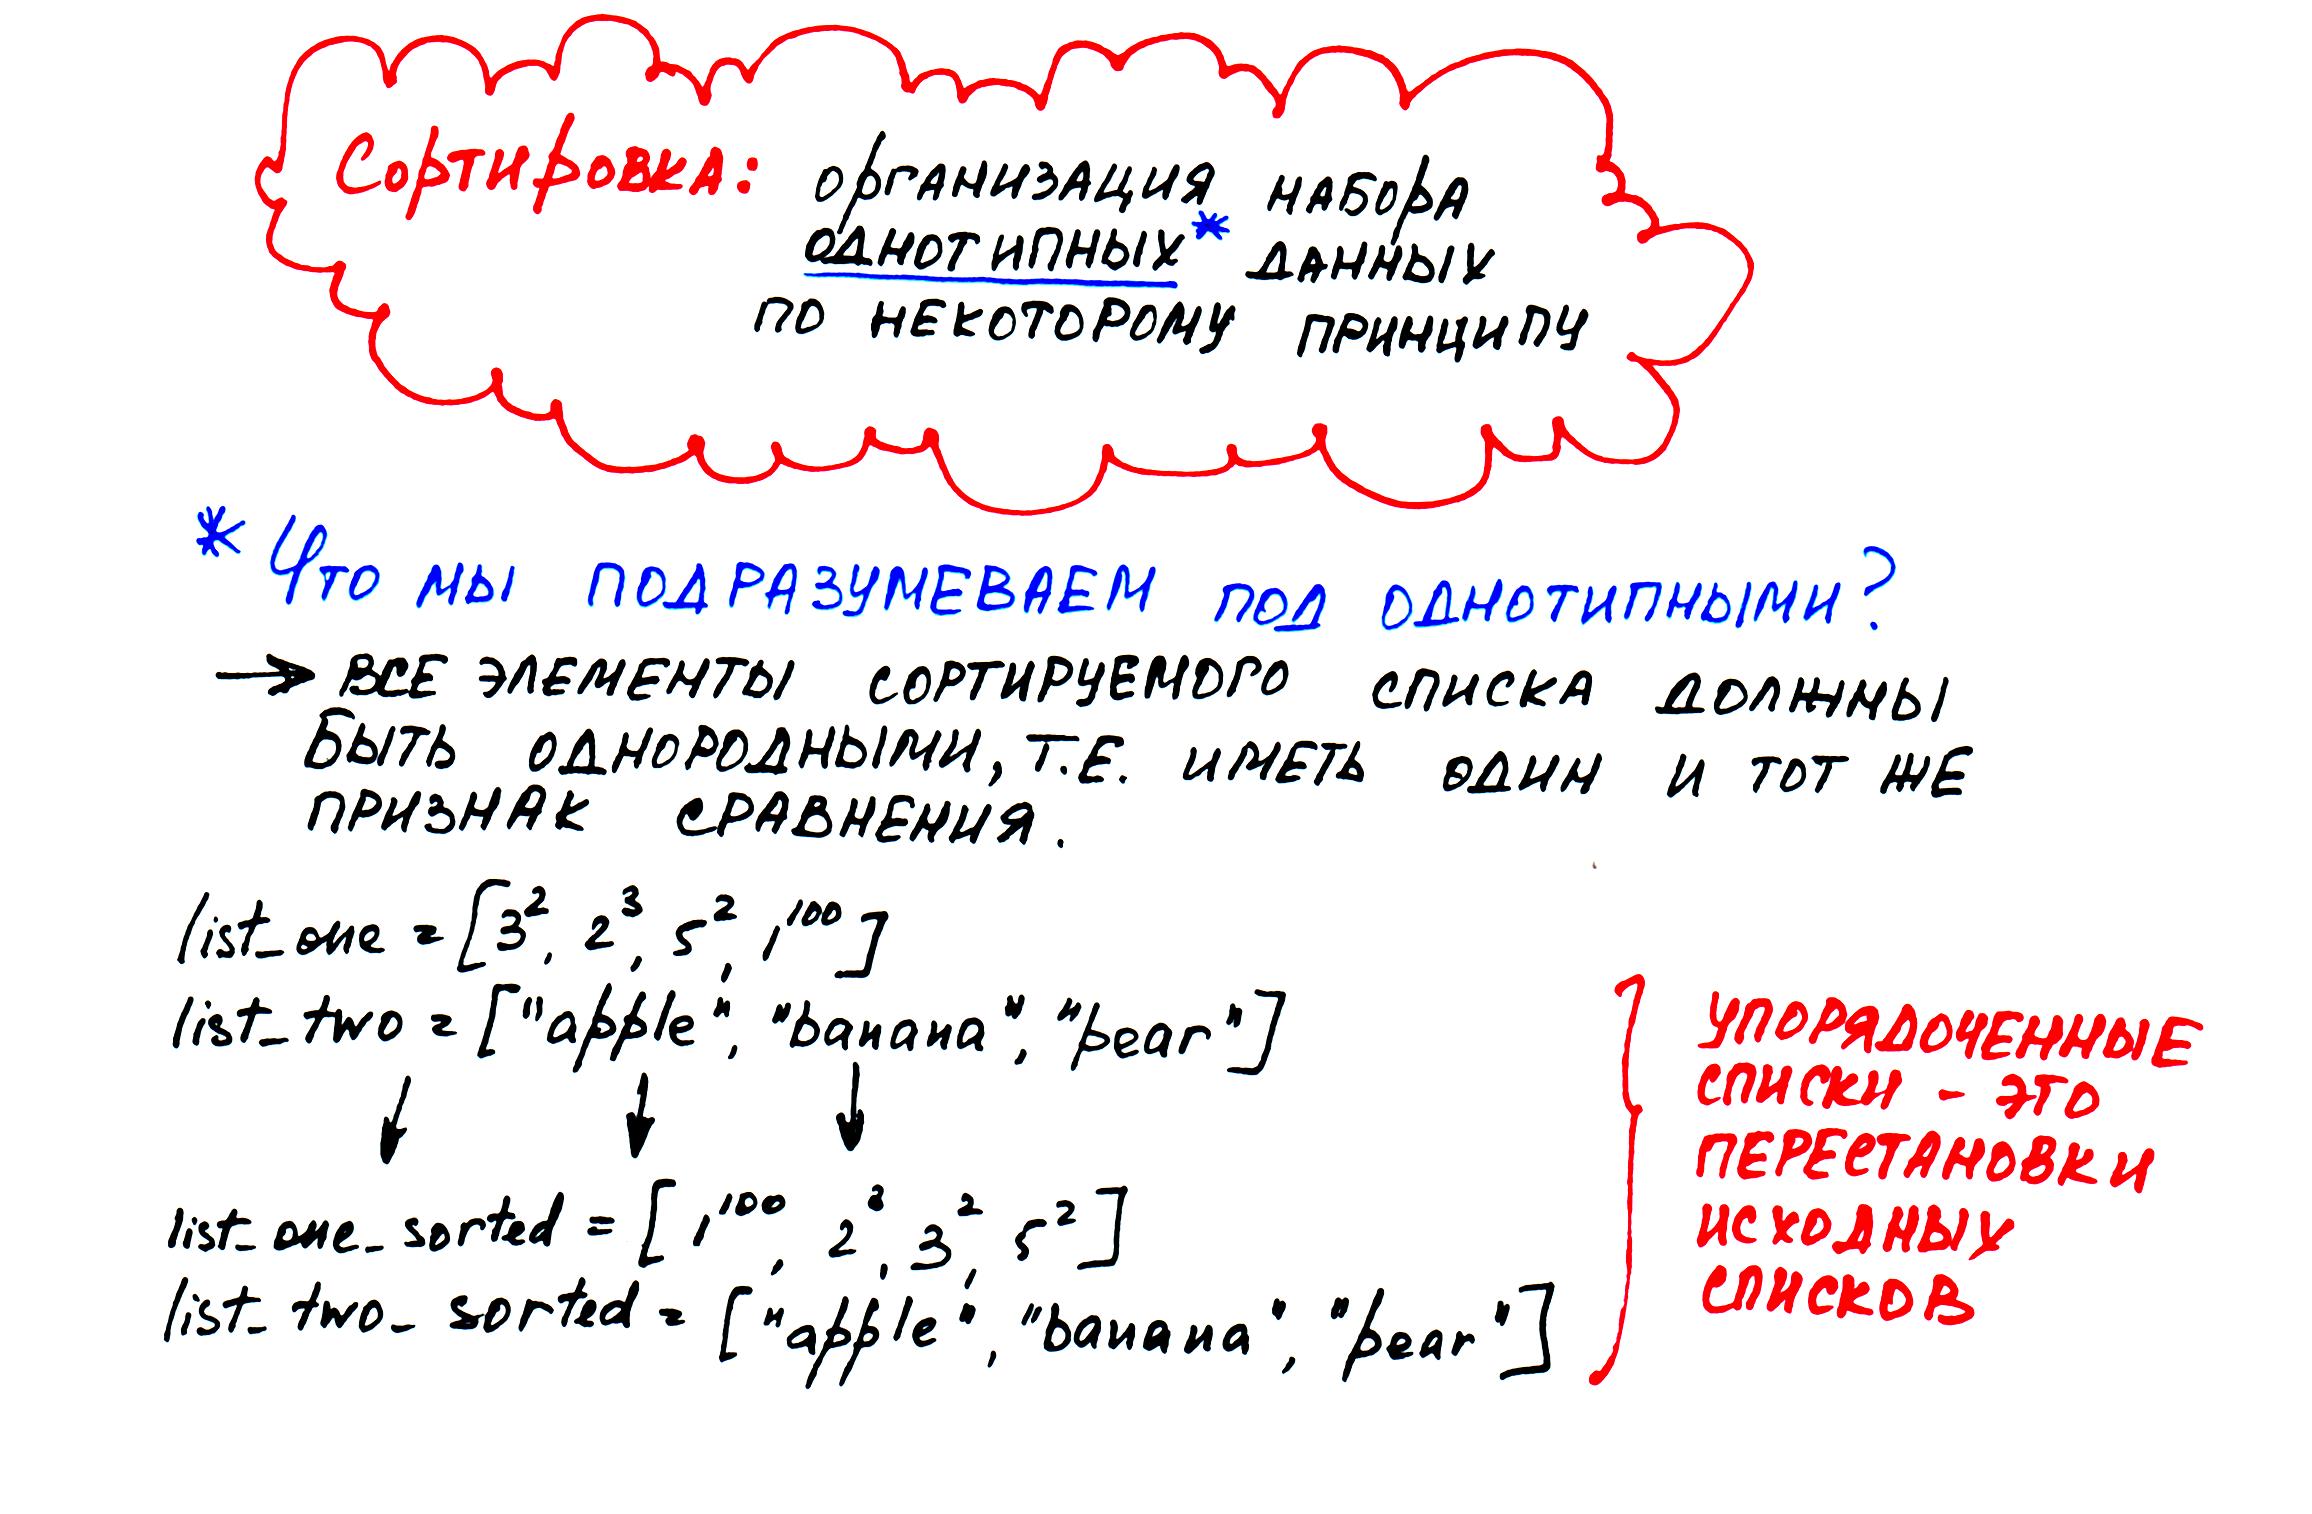 Сортировка: организация набора
однотипных* данных
по некоторому принципу
* Что мы подразумеваем под однотипными?
→ все элементы сортируемого списка должны
быть однородными, т.е. иметь один и тот же
признак сравнения.
list_one = [3², 2³, 5², 1¹⁰⁰]
list_two = ["apple", "banana", "pear"]
list_one_sorted = [1¹⁰⁰, 2³, 3², 5²]
list_two_sorted = ["apple", "banana", "pear"]
упорядоченные
списки - это
перестановки
исходных
списков